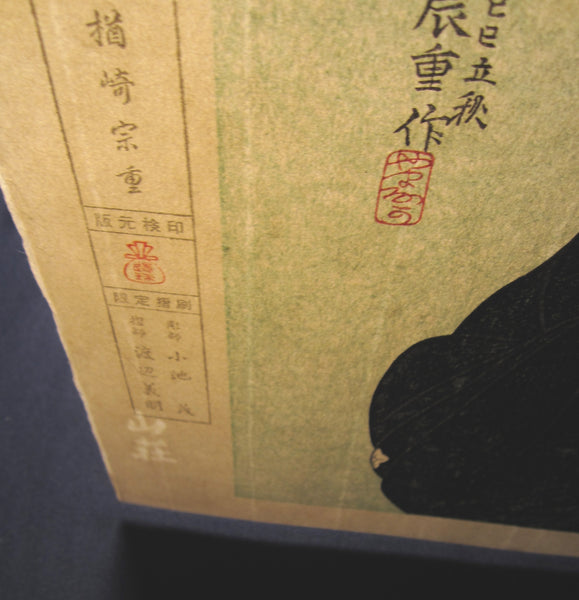 己巳立秋
辰重作
楢崎宗重
版元検印
限定摺刷
彫師 小池
摺師 渡辺義明
山荘